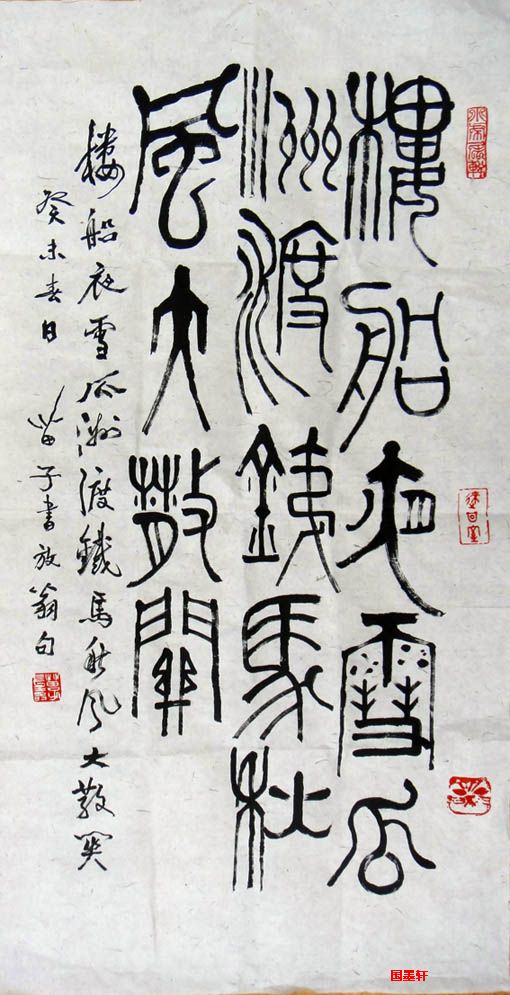 樓船夜雪瓜
洲渡鐵馬秋
風大散關
樓船夜雪瓜洲渡鐵馬秋風大散關
癸未春日 苗子書放翁句
国墨轩